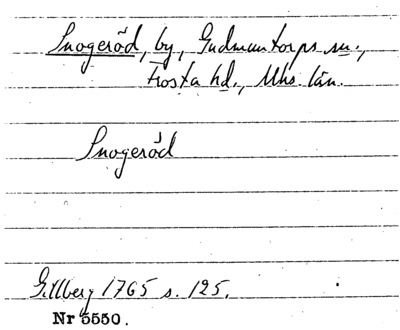 Snogeröd, by, Gudmuntorps sn.,
Frosta hd., Mhs län.
Snogeröd
Gillberg 1765 s. 125.
Nr 5550.